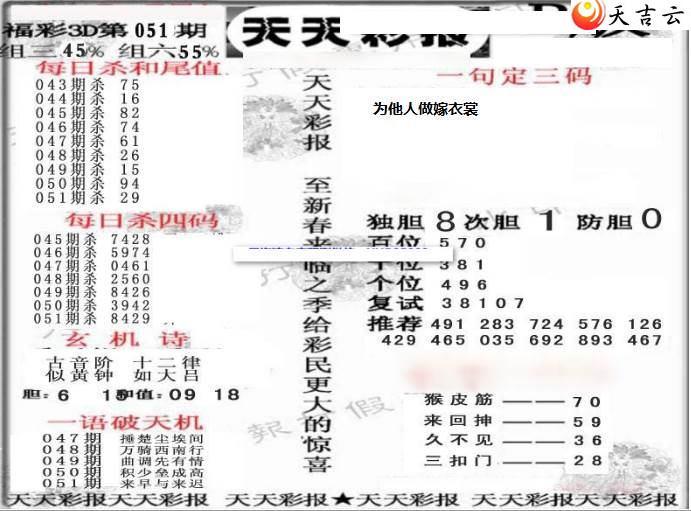 福彩3D第051期
组三45% 组六55%
天天彩报
天吉云
每日杀和尾值
043期杀 75
044期杀 16
045期杀 82
046期杀 74
047期杀 61
048期杀 26
049期杀 15
050期杀 94
051期杀 29
每日杀四码
045期杀 7428
046期杀 5974
047期杀 0461
048期杀 2560
049期杀 8426
050期杀 3942
051期杀 8429
玄机诗
古音阶 十二律
似黄钟 如大吕
胆:6 15和值:09 18
一语破天机
047期 捶楚尘埃间
048期 万骑西南行
049期 曲调先有情
050期 积少垒成高
051期 来早与来迟
天天彩报 至新春来临之季给彩民更大的惊喜
一句定三码
为他人做嫁衣裳
独胆8次胆1防胆0
百位570
十位381
个位496
复试38107
推荐 491 283 724 576 126
429 465 035 692 893 467
猴皮筋——70
来回抻——59
久不见——36
三扣门——28
天天彩报 天天彩报 天天彩报★天天彩报 天天彩报 天天彩报